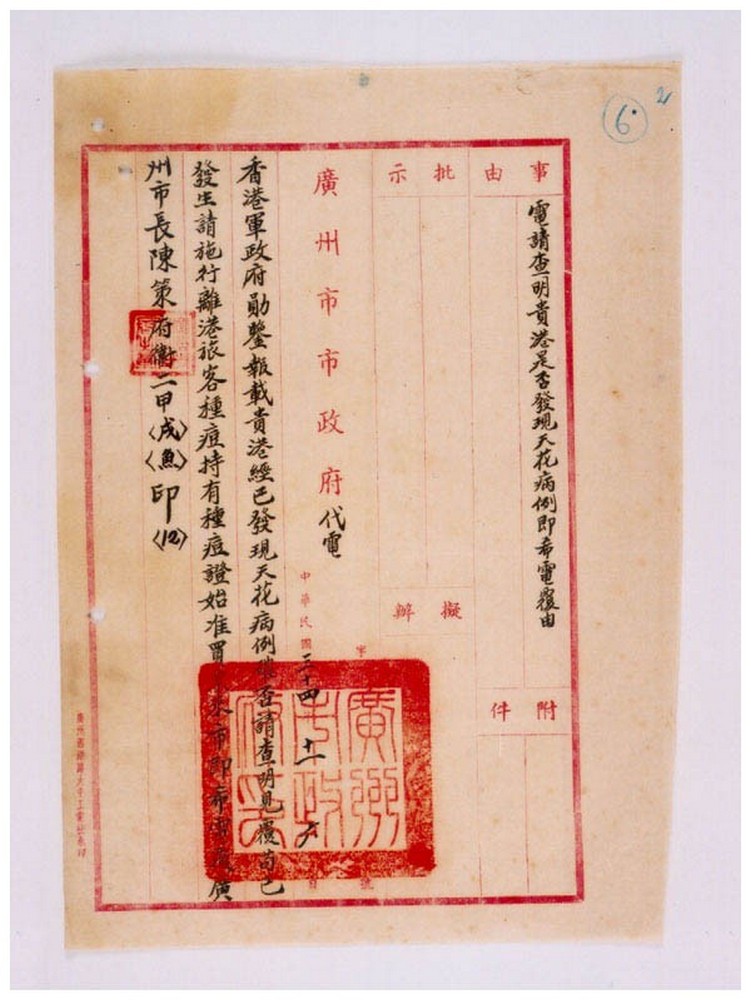 2
6
事由
電請查明貴港是否發現天花病例即希電覆由
附件
批示
擬辦
廣州市市政府代電
中華民國三十四 十一 六 日
字 號
廣州市政府印
香港軍政府勛鑒報載貴港經已發現天花病例 否請查明見覆苟已
發生請施行離港旅客種痘持有種痘證始准買 來市即希 廣
州市長陳策府衛二甲(戌)(魚)印(12)